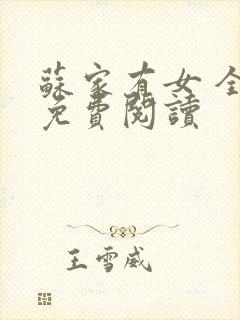 蘇家有女全
免費閱讀
王雪威